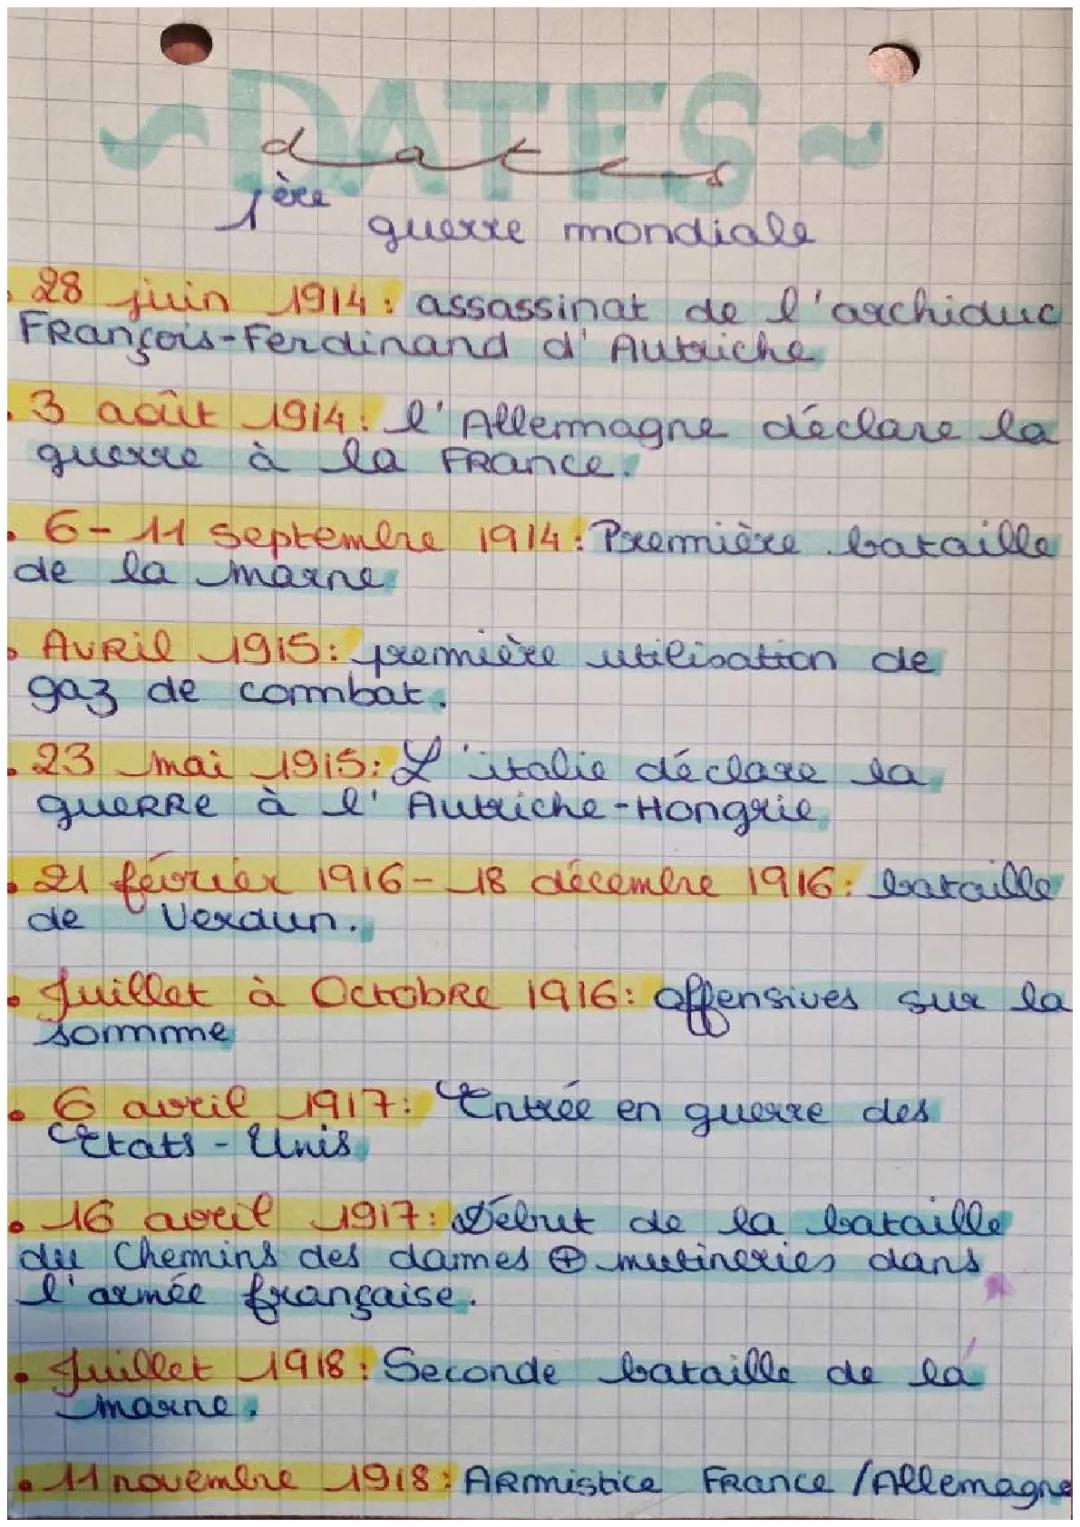 ~DATES~
dates
1ère guerre mondiale
• 28 juin 1914: assassinat de l'archiduc
François-Ferdinand d'Autriche
• 3 août 1914: l'Allemagne déclare la
guerre à la France.
• 6-11 septembre 1914: Première bataille
de la marne
• Avril 1915: première utilisation de
gaz de combat.
• 23 mai 1915: L'italie déclare la
guerre à l'Autriche-Hongrie
• 21 février 1916-18 décembre 1916: bataille
de Verdun.
• Juillet à Octobre 1916: offensives sur la
somme
• 6 avril 1917: Entrée en guerre des
Etats-Unis
• 16 avril 1917: Début de la bataille
du Chemins des dames ⊕ mutineries dans
l'armée française.
• Juillet 1918: Seconde bataille de la
marne.
• 11 novembre 1918: Armistice France/Allemagne